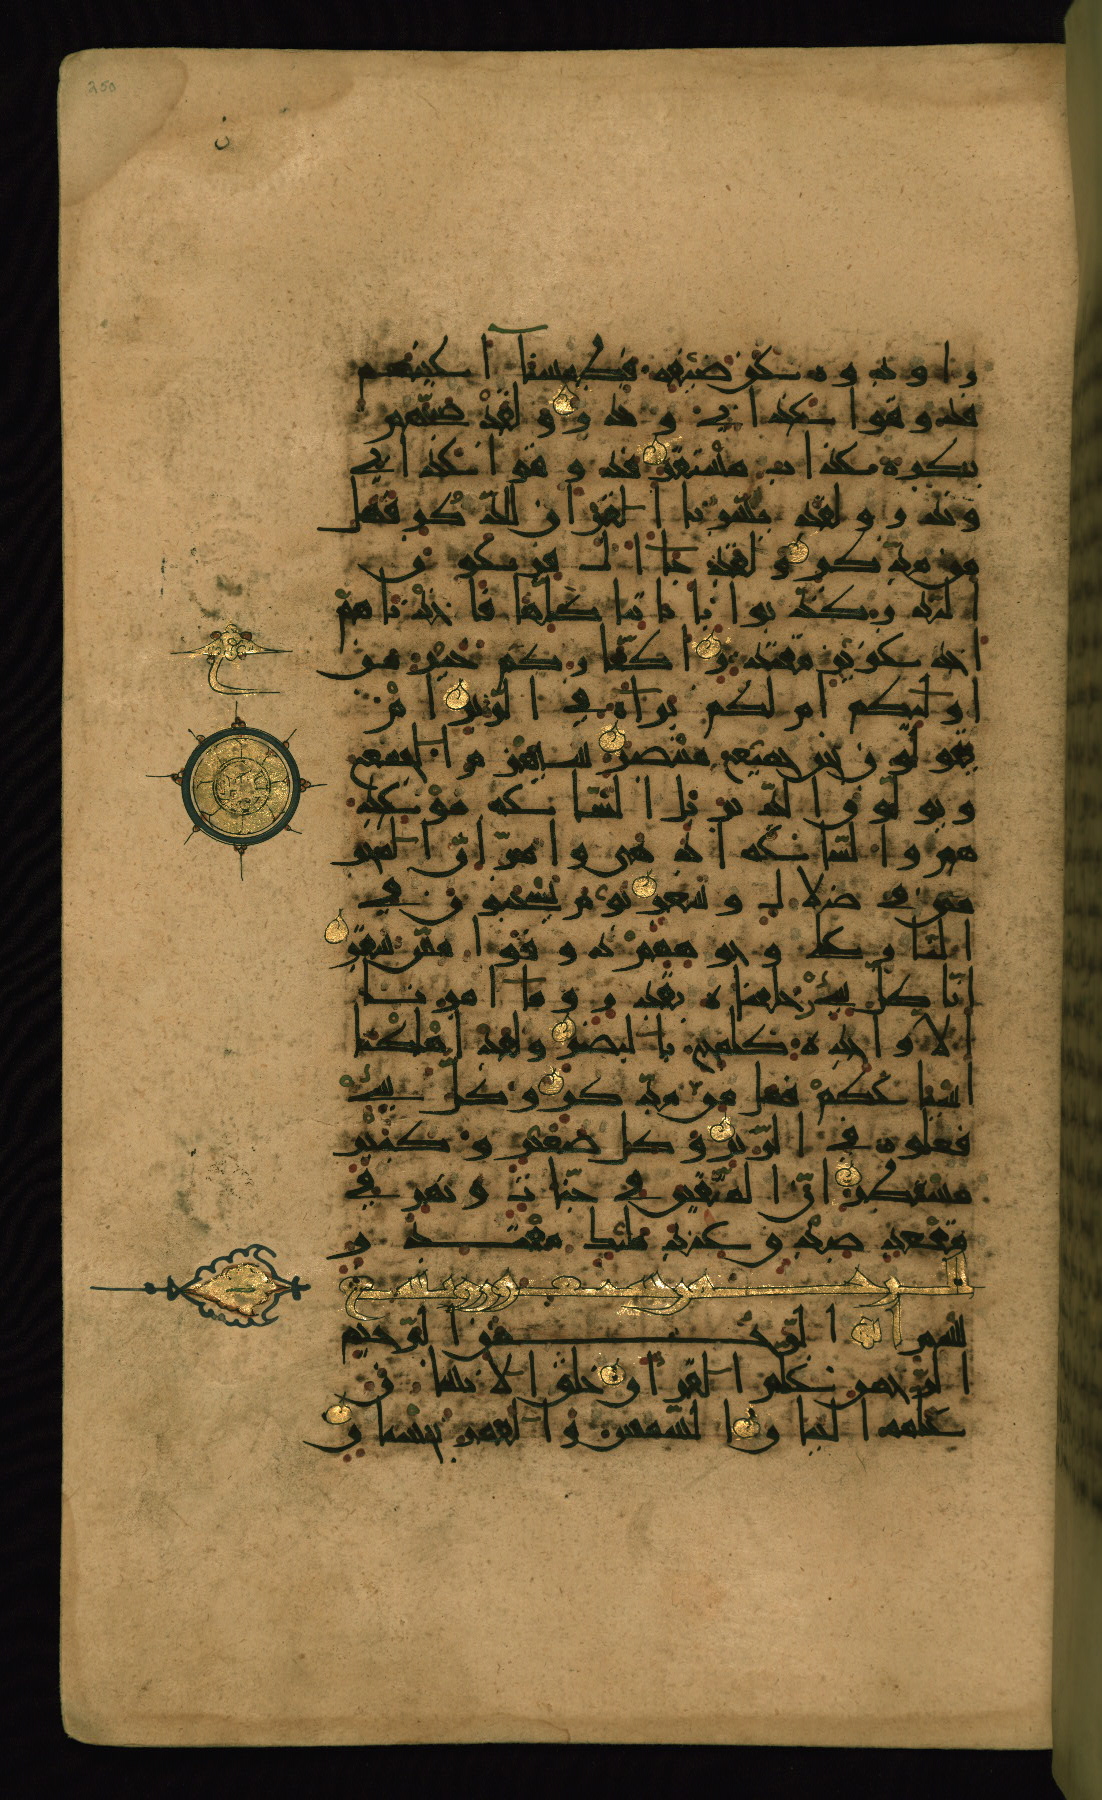 250
ن
راودوه عن ضيفه فطمسنا أعينهم
فذوقوا عذابي ونذر ولقد صبحهم
بكرة عذاب مستقر فذوقوا عذابي
ونذر ولقد يسرنا القران للذكر فهل
من مدكر ولقد جا ال فرعون
النذر كذبوا باياتنا كلها فاخذناهم
اخذ عزيز مقتدر اكفاركم خير من
اوليكم ام لكم براة في الزبر ام
يقولون نحن جميع منتصر سيهزم الجمع
ويولون الدبر بل الساعة موعد
هم والساعة ادهى وامر ان المجر
مين في ضلال وسعر يوم يسحبون في
النار على وجوههم ذوقوا مس سقر
انا كل شئ خلقناه بقدر وما امرنا
الا واحدة كلمح بالبصر ولقد اهلكنا
اشياعكم فهل من مدكر وكل شئ
فعلوه في الزبر وكل صغير وكبير
مستطر ان المتقين في جنات ونهر في
مقعد صدق عند مليك مقتدر
بسم الله الرحمن الرحيم
الرحمن علم القران خلق الانسان
علمه البيان الشمس والقمر بحسبان